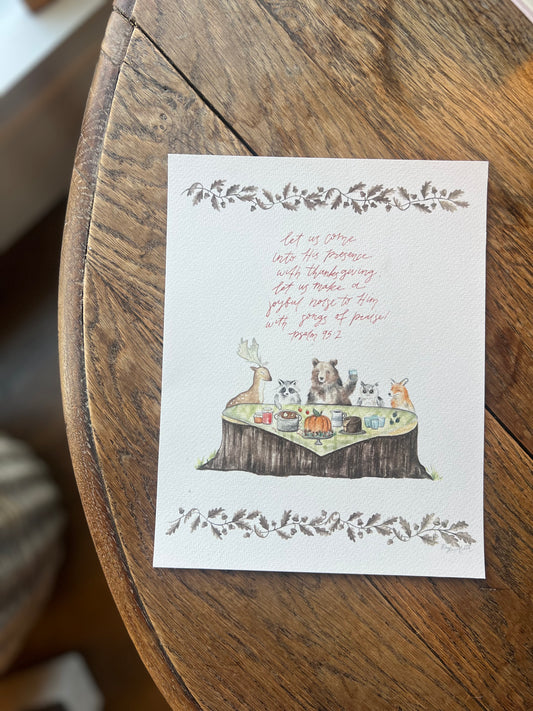 let us come
into His presence
with thanksgiving.
let us make a
joyful noise to Him
with songs of praise!
-psalm 95:2